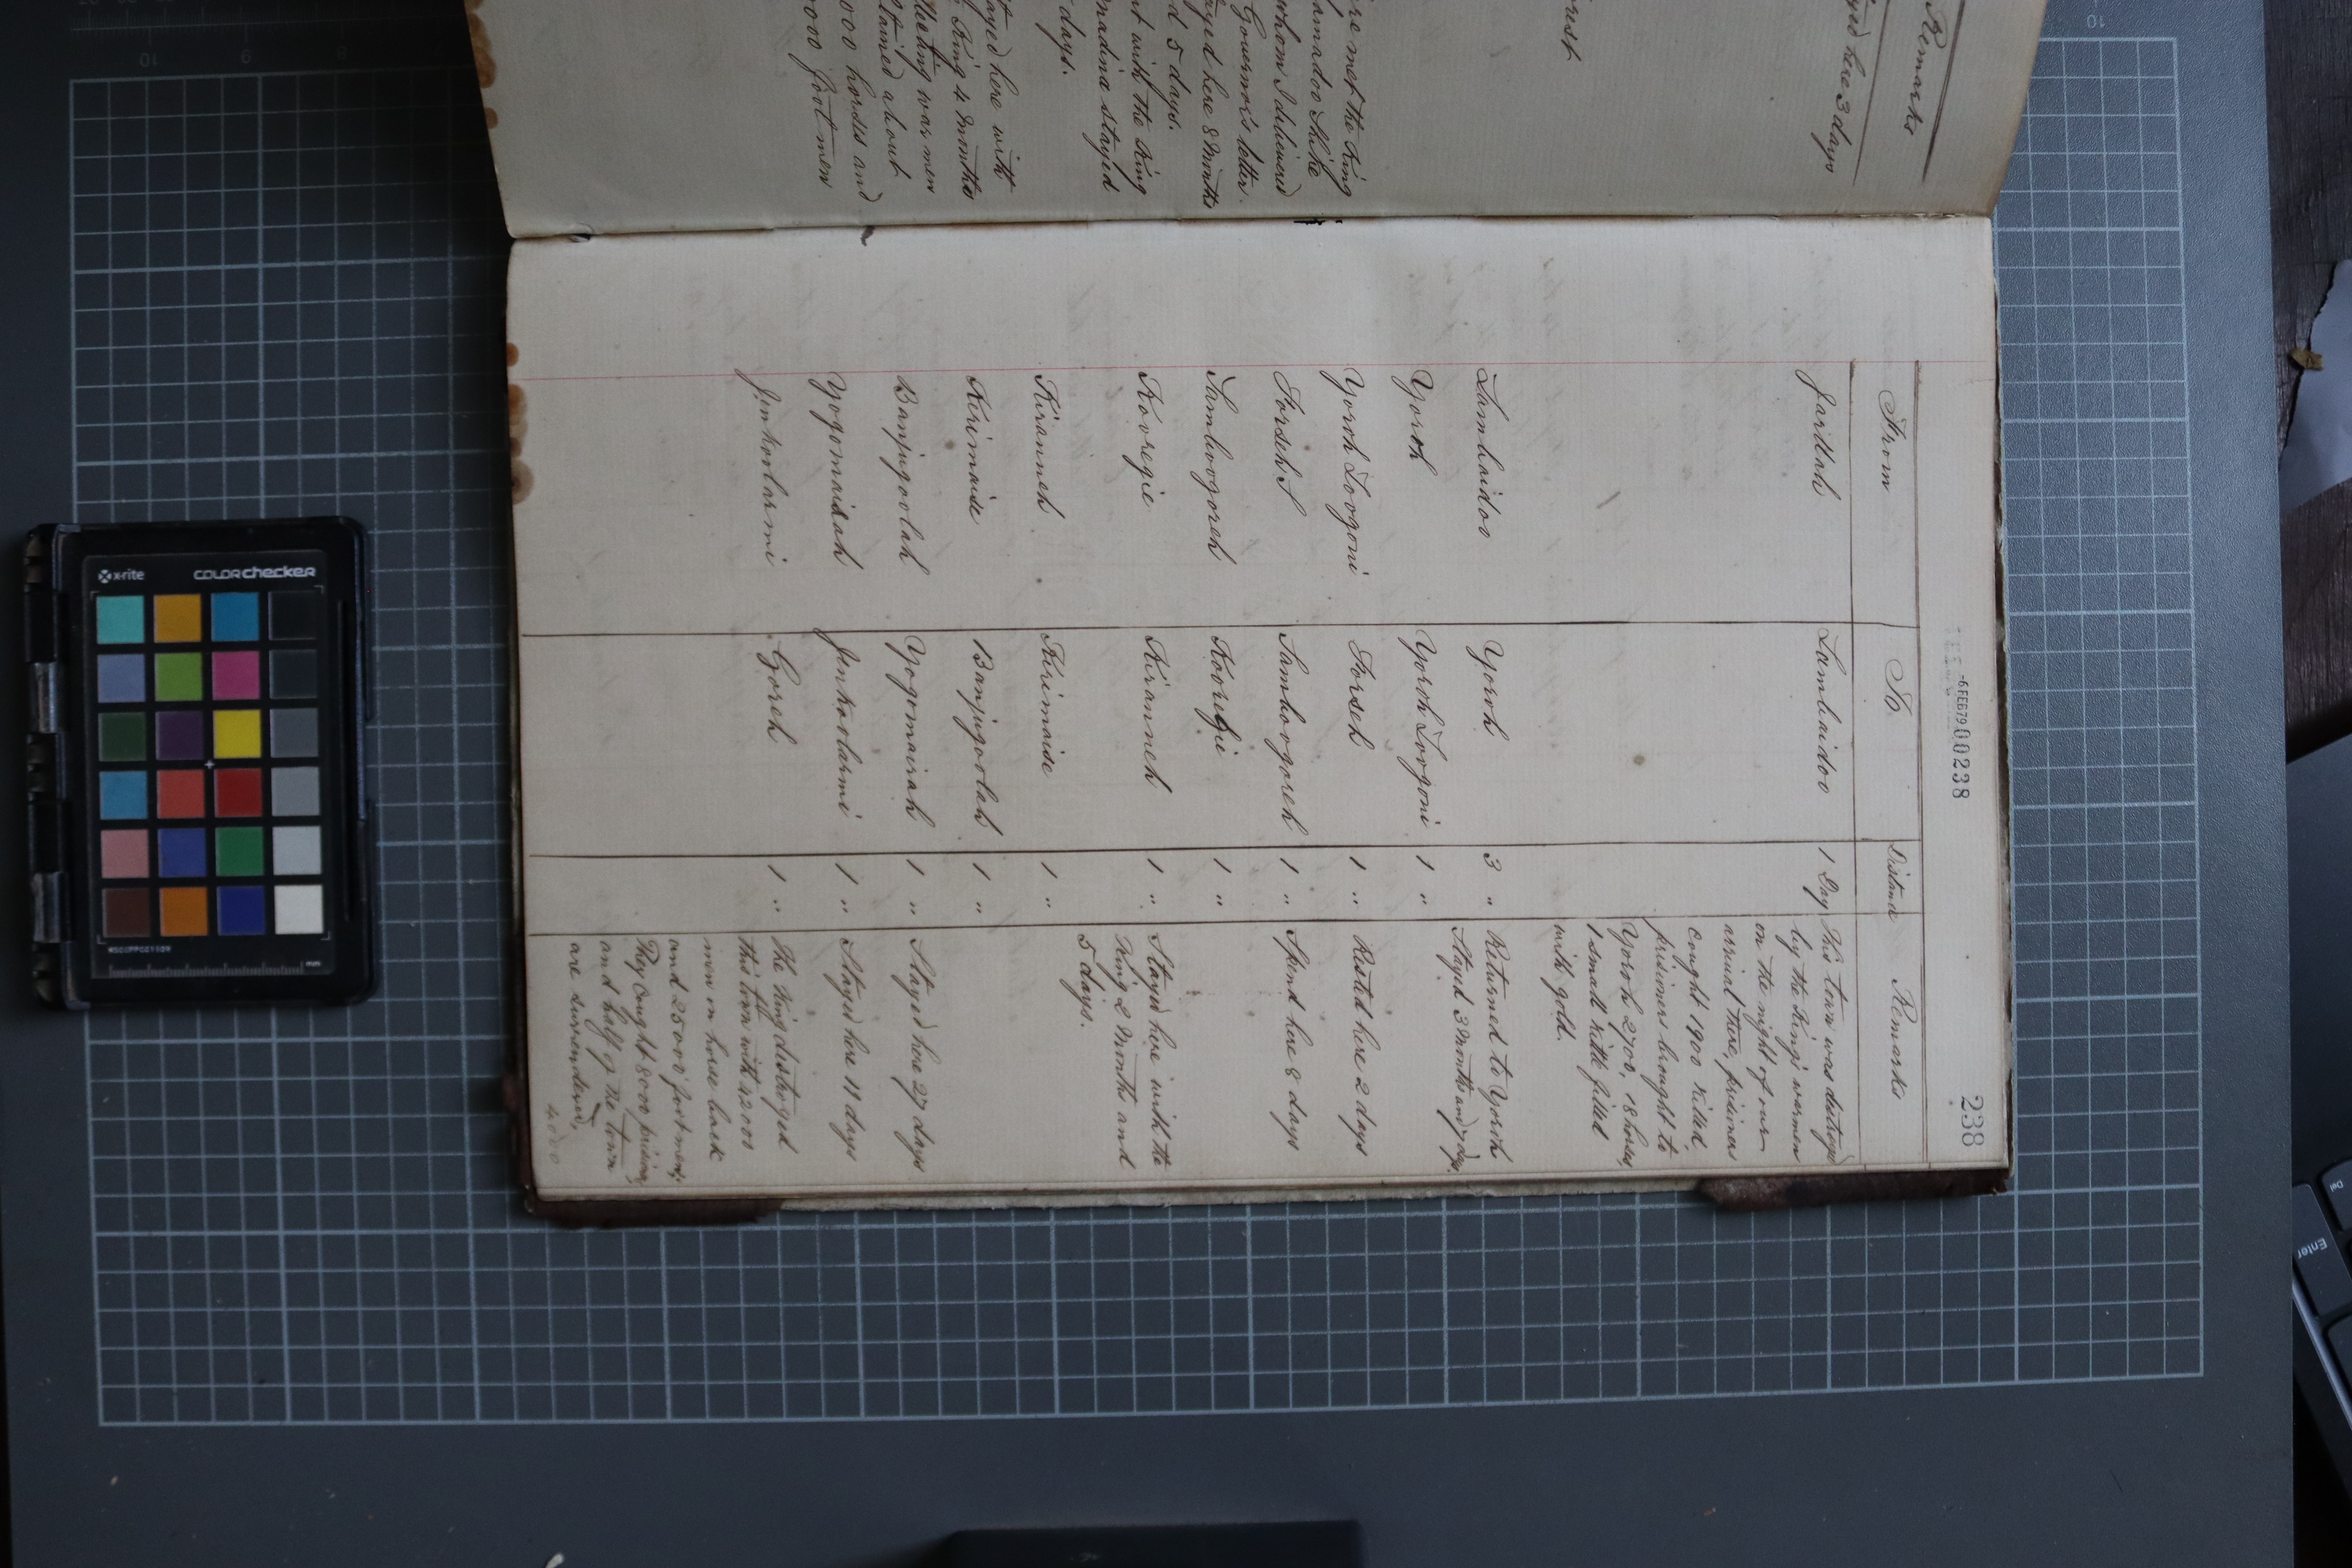 Remarks
here 3 days
rest
re met the King
whom I delivered
Governor's letter
ayed here 8 Months
d 5 days.
nt with the King
madina stayed
days.
ayed here with
King 4 Months
Meeting was men
tained about
000 horses and
000 foot men
-6FEB79 000238
238
From To Distance Remarks
Jardlah Lambaidoo 1 Day This town was destroyed
by the King's warmen
on the night of our
arrival there, prisiners
caught 1900 killed,
prisioners brought to
Yoroh 2700, 18 horses,
1 small kittle filled
with gold.
Lambaidoo Yoroh 3 " Returned to Yoroh
Stayed 3 Months and 7 days
Yoroh Yoroh Loogoni 1 "
Yoroh Loogoni Forseh 1 " Rested here 2 days
Forseh Samboogoreh 1 " Spend here 8 days
Samboogoreh Kooregie 1 "
Kooregie Kiranneh 1 " Stayed here with the
King 2 Months and
5 days.
Kiranneh Kirimaise 1 "
Kirimaise Banjugoolah 1 "
Banjugoolah Yogomaisah 1 " Stayed here 27 days
Yogomaisah Jenkoolarmi 1 " Stayed here 11 days
Jenkoolarmi Goreh 1 " The King distroyed
this town with 42000
men on horse back
and 25000 foot men;
They Caught 8000 prisins,
and half of the town
are surrendered,
4000
x-rite colorchecker
MSCCPPCC1109
mm
Enter
Del
10
9
8
7
10